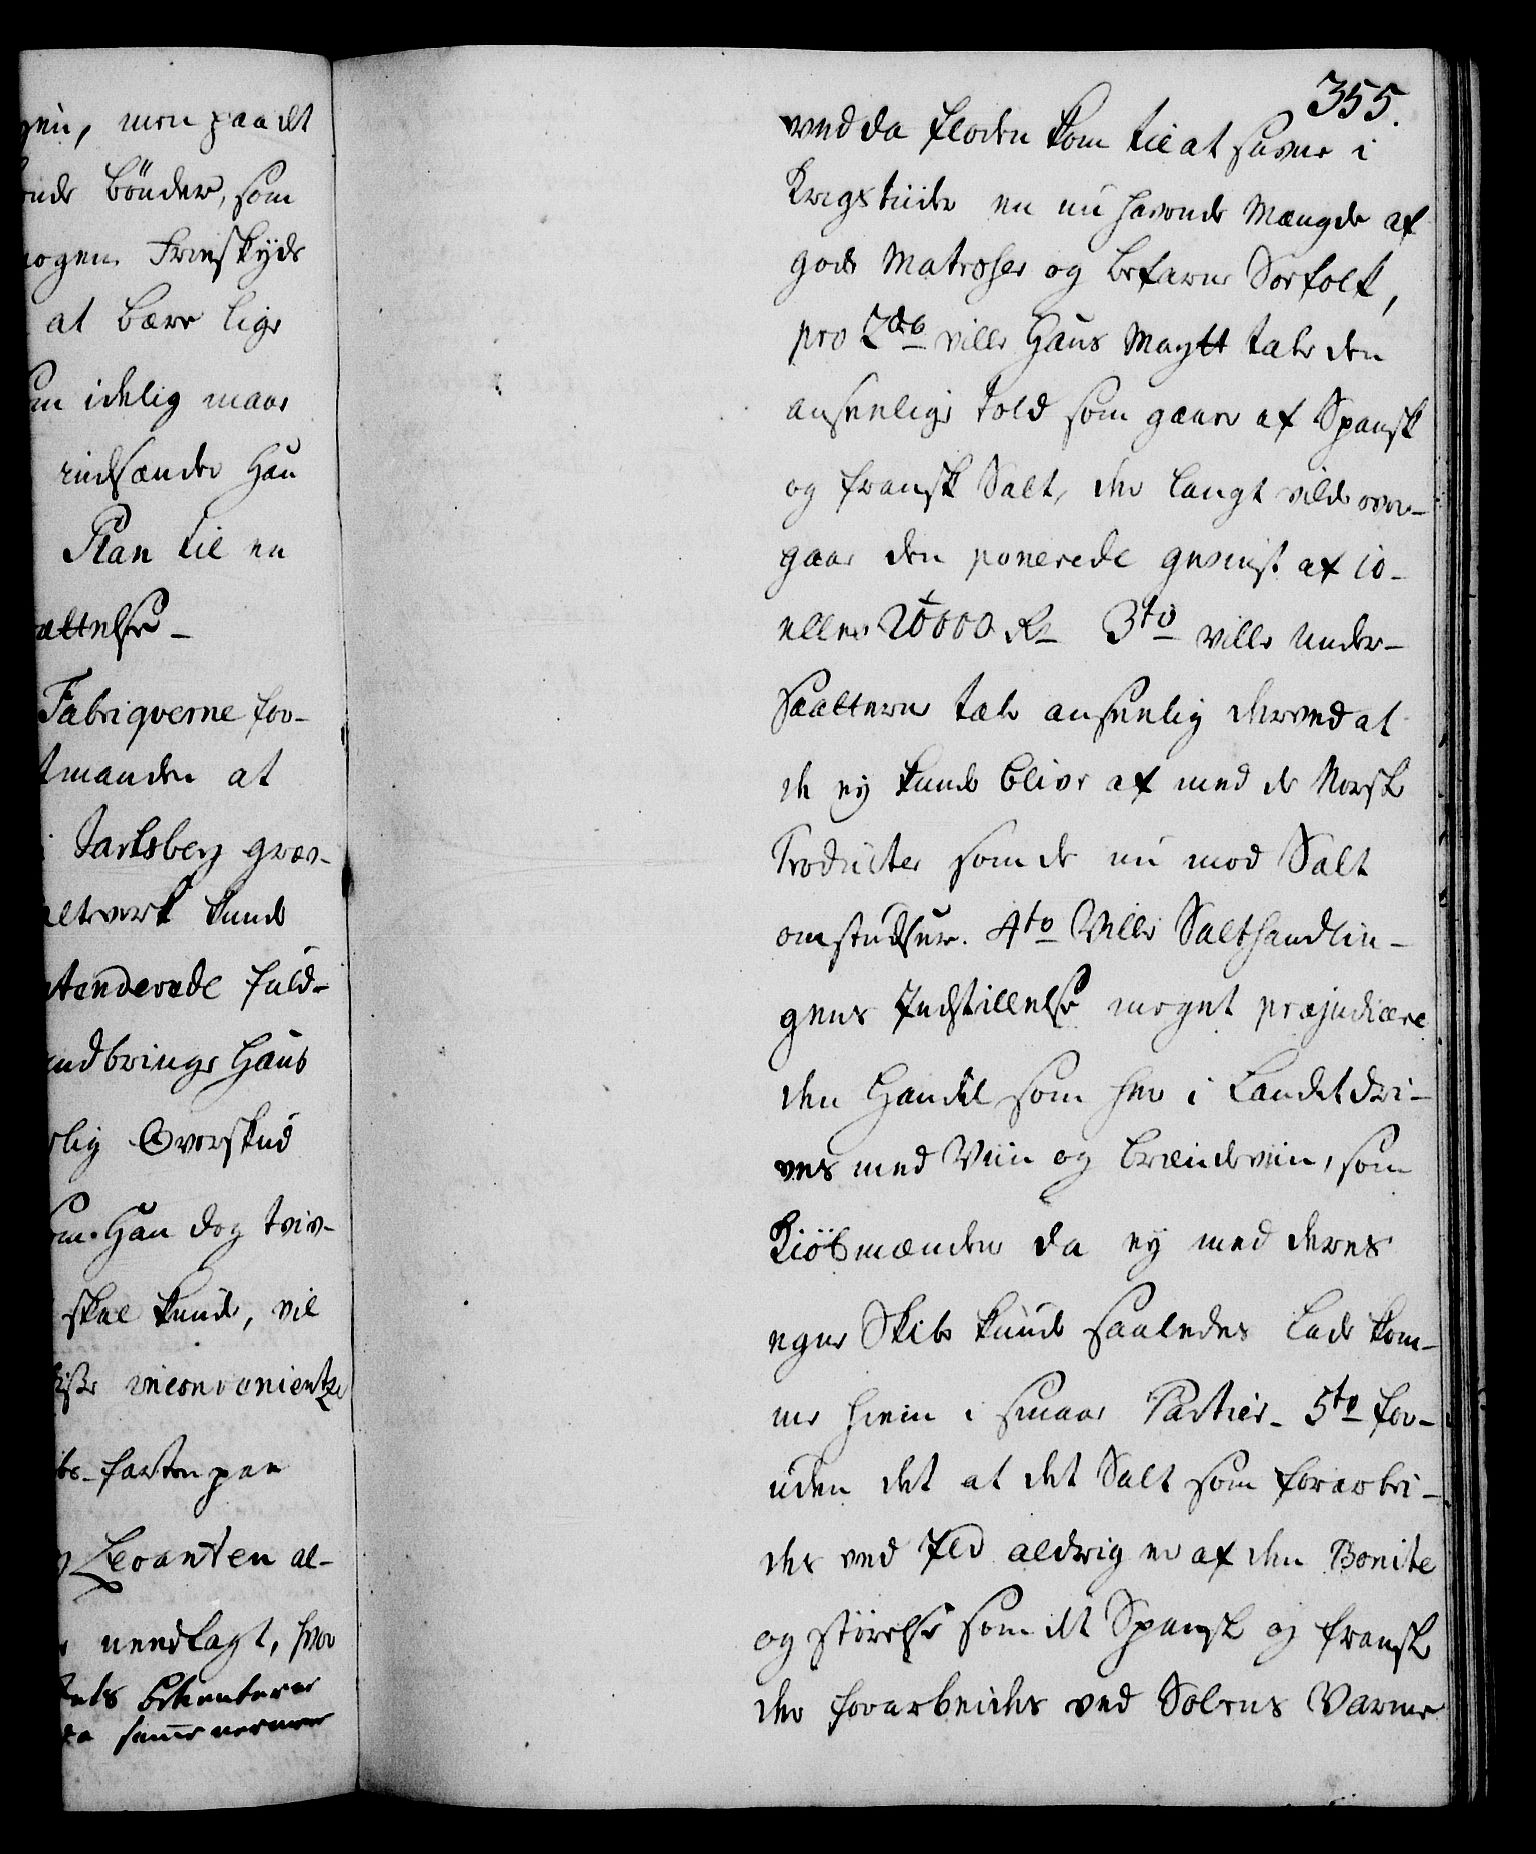 gen, men paa de
ende Bönder, som
nogen Frieskyds
at bære lige
som idelig maae
indsænder Han
Plan til en
ættelse_
Fabriqverne for-
tmanden at
i Jarlsberg grev-
altverk kunde
ntenderede fuld-
indbringe Hans
rlig Overskud
som Han dog tviv-
skal kunde, vil
disse inconvenientzer
bs-farten paa
Levanten al-
needlagt, hvor
da samme nermere
355.
ved da floden kom til at savne i
Krigstiider en nu havende Mængde af
gode Matroser og befarne Søefolk,
pro 2do ville Hans Maytt tabe den
anseelige told som gaaer af Spansk
og fransk Salt, der langt vilde over-
gaae den ponerede gevinst af 10-
eller 20000 Rd 3tio ville Under-
Saatterne tabe anseelig derved at
de ej kunde blive af med de Norske
Producter som de nu mod Salt
omstudser. 4to Ville Salthandlin-
gens Indstillelse meget præjudicere
den Handel som her i Landet dri-
ves med Viin og brændeviin, som
Kiöbmænden da ey med deres
egne Skibe kunde saaledes lade kom-
me hiem i smaae Partier_ 5to for-
uden det at det Salt som forarbei-
des ved Ild aldrig er af den Bonite
og störelse som det Spansk og fransk
der forarbeides ved Solens Varme